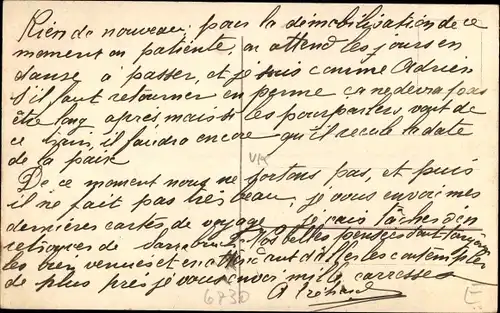 Rien de nouveau pour la démobilisation de ce
moment on patiente, on attend les jours en
danse à passer, et je suis comme Adrien
S'il faut retourner en perme ça ne devra pas
être long après mais si les pourparlers vont de
ce train, il faudra encore qu'il recule la date
de la paix
De ce moment nous ne sortons pas, et puis
il ne fait pas très beau, je vous envoi mes
dernières cartes de voyage je vais tâcher d'en
retrouver de Vos belles pensées sont toujours
les bien venues et en d'aller les contempler
de plus près je vous envoi mille caresses
VK
6730
E